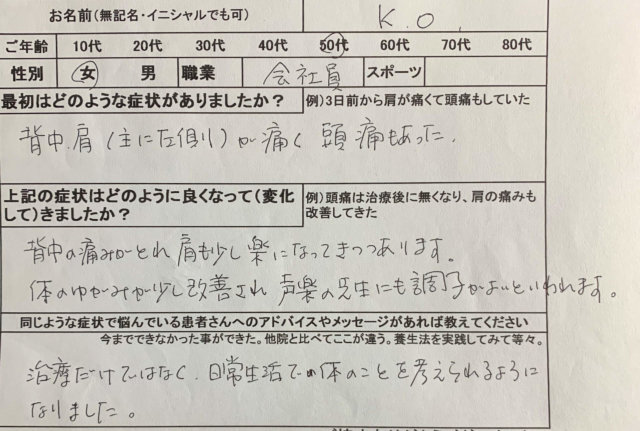 お名前(無記名・イニシャルでも可) K.O.
ご年齢 10代 20代 30代 40代 50代 60代 70代 80代
性別 女 男 職業 会社員 スポーツ
最初はどのような症状がありましたか? 例)3日前から肩が痛くて頭痛もしていた
背中.肩(主に左側)が痛く 頭痛もあった.
上記の症状はどのように良くなって(変化 例)頭痛は治療後に無くなり、肩の痛みも
して)きましたか? 改善してきた
背中の痛みがとれ 肩も少し楽になってきつつあります。
体のゆがみが少し改善され 声楽の先生にも調子がよいといわれます。
同じような症状で悩んでいる患者さんへのアドバイスやメッセージがあれば教えてください
今までできなかった事ができた。他院と比べてここが違う。養生法を実践してみて等々。
治療だけではなく、日常生活での体のことを考えられるように
なりました。